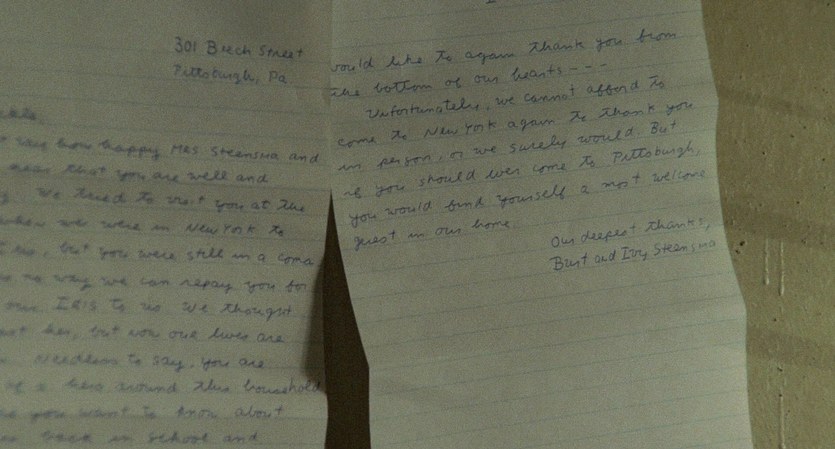 301 Beech Street
Pittsburgh, Pa
say how happy Mrs Steensma and
hear that you are well and
We tried to visit you at the
when we were in New York to
but you were still in a coma
no way we can repay you for
our IRIS to us. We thought
her, but now our lives are
Needless to say, you are
of a hero around this household
you want to know about
back in school and
would like to again thank you from
the bottom of our hearts - - -
Unfortunately, we cannot afford to
come to New York again to thank you
in person, or we surely would. But
if you should ever come to Pittsburgh,
you would find yourself a most welcome
guest in our home.
Our deepest thanks,
Burt and Ivy Steensma